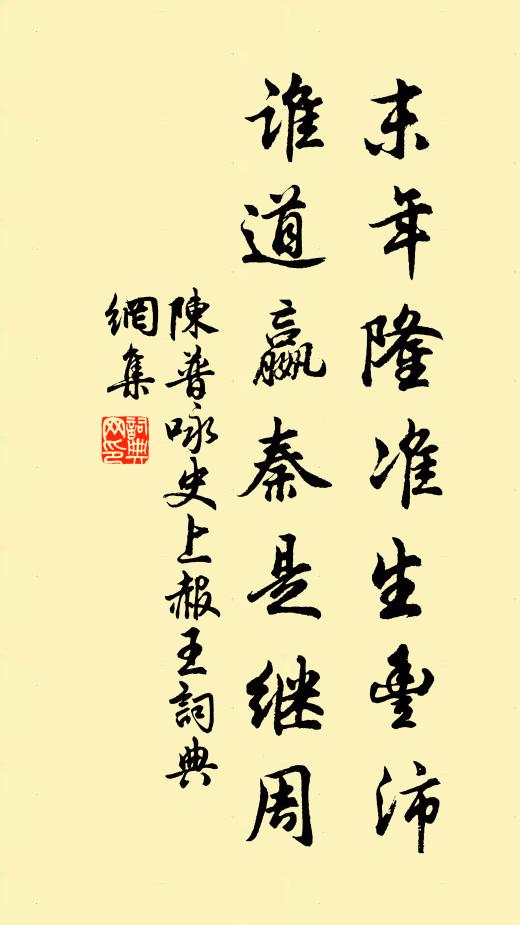 末年隆准生豐沛
谁道嬴秦是继周
陳普咏史上赧王詞典
網集
詞典
网印